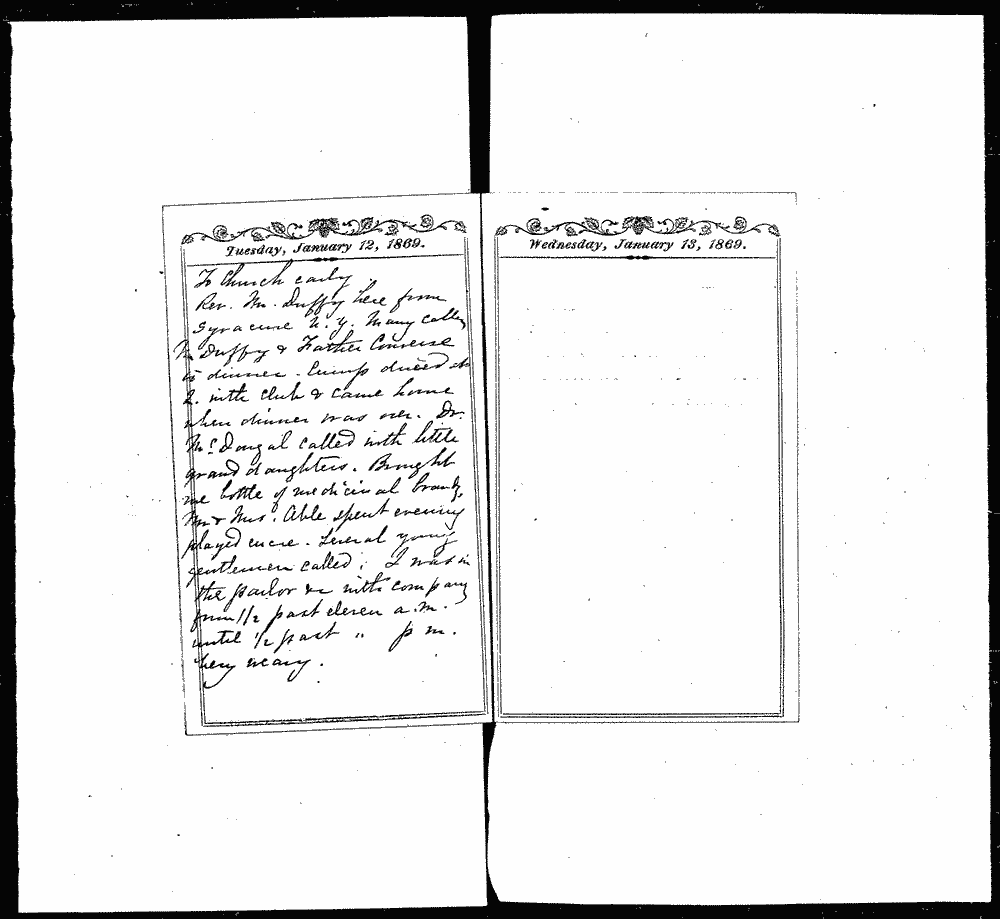 Tuesday, January 12, 1869.
To Church early.
Rev. Mr. Duffy here from
Syracuse N. Y. Many called
Mr Duffy & Father Converse
to dinner. Cump dined at
2. with Club & came home
when dinner was over. Dr.
McDougal called with little
grand daughters. Brought
me bottle of medicinal brandy,
Mr & Mrs. Able spent evening
played eucre. Several young
gentlemen called; I was in
the parlor &c with company
from 1/2 past eleven a.m.
until 1/2 past " p m.
Very weary.
Wednesday, January 13, 1869.